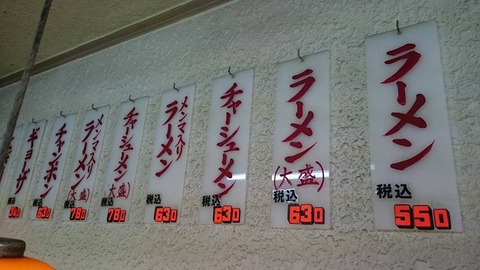 ラーメン
税込
550
ラーメン
(大盛)
税込
630
チャーシューメン
税込
630
メンマ入り
ラーメン
税込
630
チャーシューメン
(大盛)
税込
780
メンマ入り
ラーメン
(大盛)
税込
780
チャンポン
税込
630
ギョーザ
税込